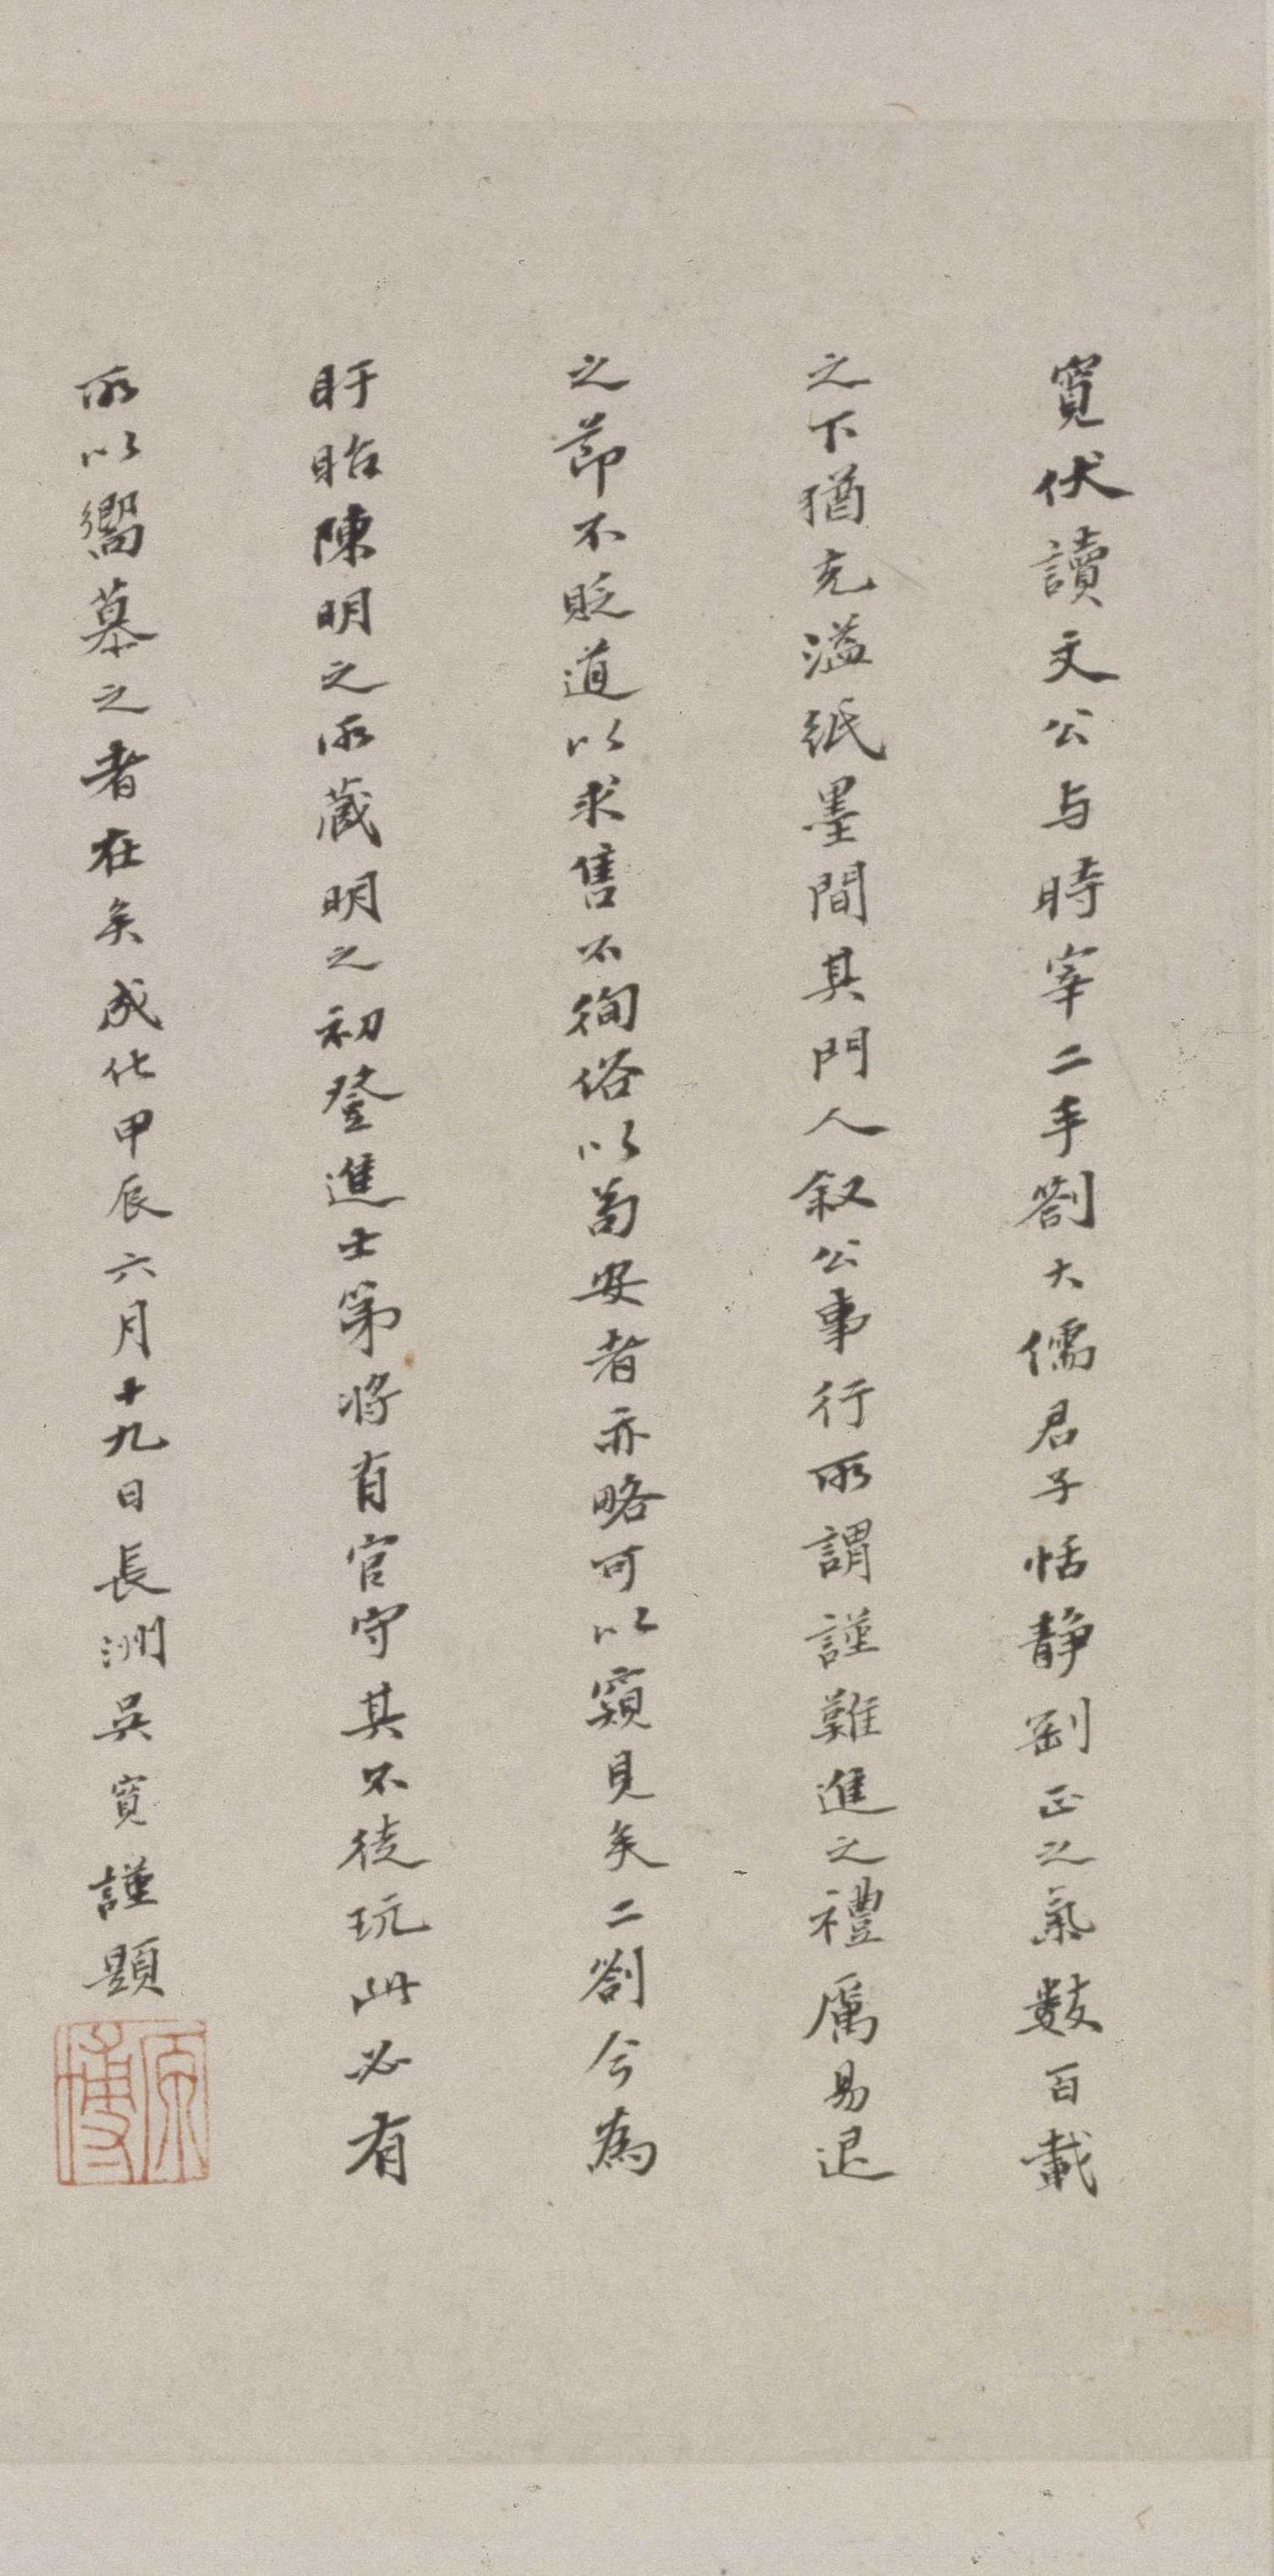 寬伏讀文公与時宰二手劄大儒君子恬静剛正之氣數百載
之下猶充溢紙墨間其門人叙公事行所謂謹難進之禮厲易退
之節不貶道以求售不徇俗以苟安者亦略可以窺見矣二劄今為
盱眙陳明之所藏明之初登進士第將有官守其不徒玩此必有
所以嚮慕之者在矣成化甲辰六月十九日長洲吳寬謹題
原博